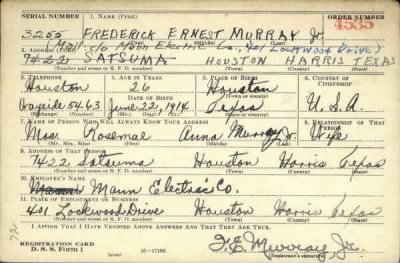 SERIAL NUMBER 1. NAME (Print) ORDER NUMBER
3255 FREDERICK ERNEST MURRAY Jr. 4535
(First) (Middle) (Last)
Mail c/o Mann Electric Co., 401 Lockwood Drive)
2. ADDRESS (Print)
7422 SATSUMA HOUSTON HARRIS TEXAS
(Number and street or R. F. D. number) (Town) (County) (State)
3. TELEPHONE 4. AGE IN YEARS 5. PLACE OF BIRTH 6. COUNTRY OF CITIZENSHIP
Houston 26 Houston
DATE OF BIRTH (Town or county)
Wayside 5463 June 22, 1914 Texas U.S.A.
(Exchange) (Number) (Mo.) (Day) (Yr.) (State or country)
7. NAME OF PERSON WHO WILL ALWAYS KNOW YOUR ADDRESS 8. RELATIONSHIP OF THAT PERSON
Mrs. Rosemae Anna Murray Jr. Wife
(Mr., Mrs., Miss) (First) (Middle) (Last)
9. ADDRESS OF THAT PERSON
7422 Satsuma Houston Harris Texas
(Number and street or R. F. D. number) (Town) (County) (State)
10. EMPLOYER'S NAME
Mann Electric Co.
11. PLACE OF EMPLOYMENT OR BUSINESS
401 Lockwood Drive Houston Harris Texas
(Number and street or R. F. D. number) (Town) (County) (State)
I AFFIRM THAT I HAVE VERIFIED ABOVE ANSWERS AND THAT THEY ARE TRUE.
REGISTRATION CARD
D. S. S. Form 1 (over) 16—17105 F. E. Murray, Jr.
(Registrant's signature)